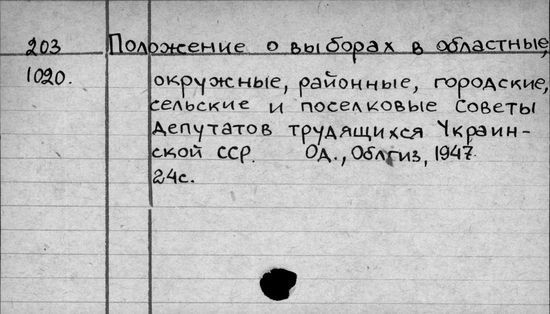 203 Положение о выборах в областные,
1020. окружные, районные, городские,
сельские и поселковые Советы
депутатов трудящихся Украин-
ской ССР. Од., Облгиз, 1947.
24с.